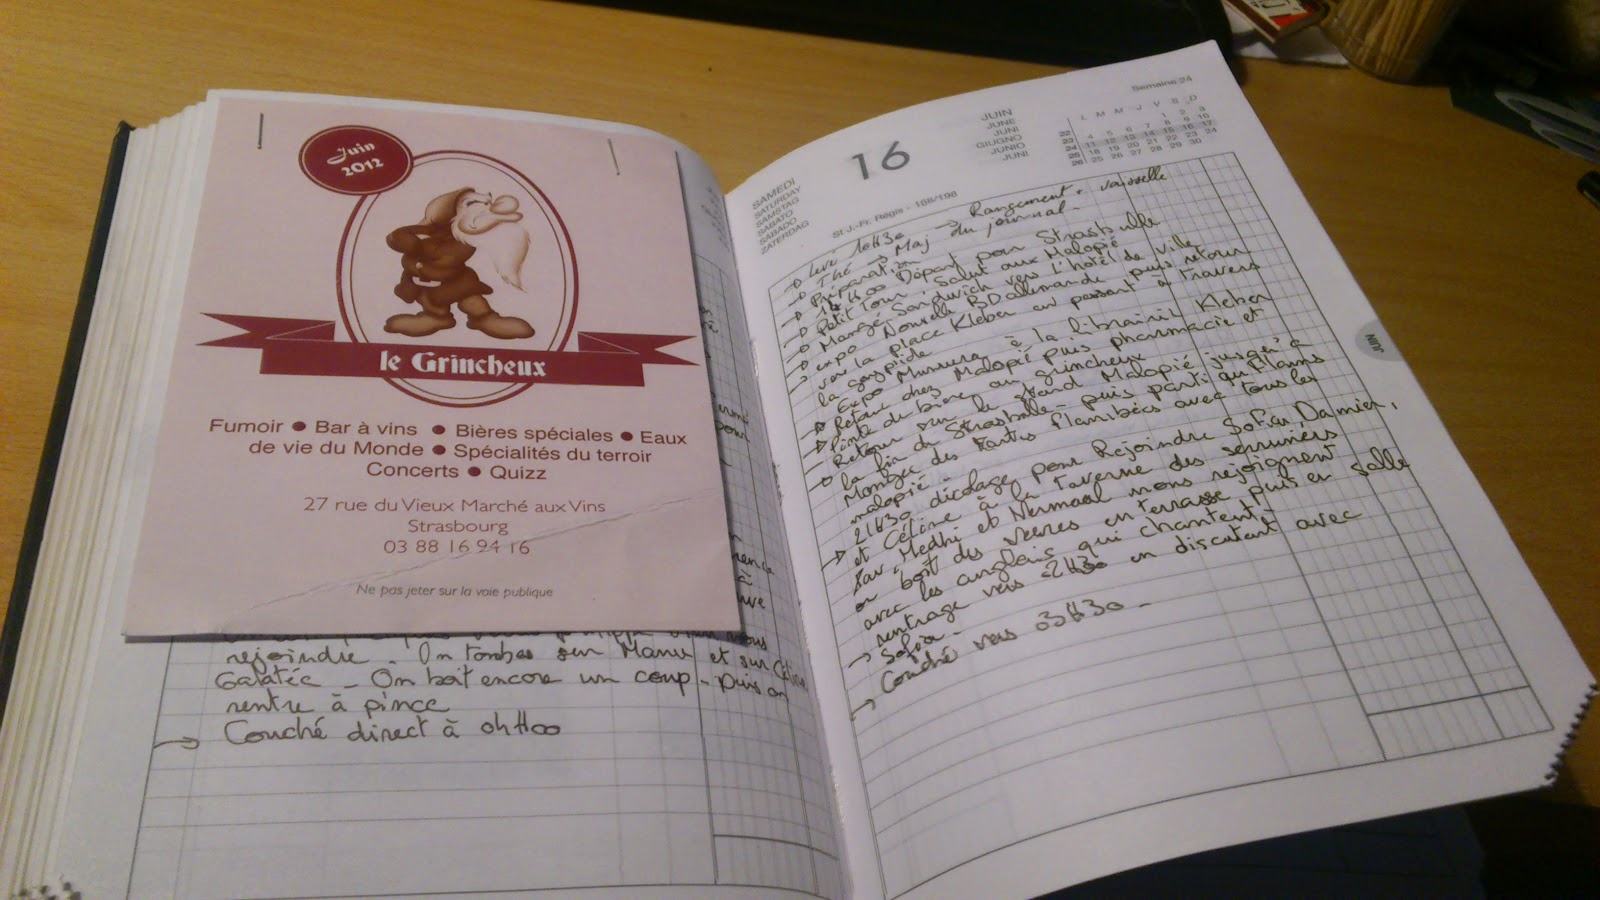 Juin
2012
le Grincheux
Fumoir ● Bar à vins ● Bières spéciales ● Eaux
de vie du Monde ● Spécialités du terroir
Concerts ● Quizz
27 rue du Vieux Marché aux Vins
Strasbourg
03 88 16 94 16
Ne pas jeter sur la voie publique
rejoindre - On tombe sur Manu et sur Céline
Galatée - On boit encore un coup - puis on
rentre à pince
→ Couché direct à 04H00
SAMEDI
SATURDAY
SAMSTAG
SABATO
SÁBADO
ZATERDAG
16
JUIN
JUNE
JUNI
GIUGNO
JUNIO
JUNI
Semaine 24
L M M J V S D
22 1 2 3
23 4 5 6 7 8 9 10
24 11 12 13 14 15 16 17
25 18 19 20 21 22 23 24
26 25 26 27 28 29 30
St J.-Fr. Régis - 168/198
Levé 10H30 → Rangement + vaisselle
Thé → Maj du journal -
Préparation
14H00 Départ pour Strasbulle
Petit Tour, Salut aux Malopié
Mangé Sandwich vers l'hôtel de ville
expo Nouvelle BD allemande puis retour
vers la place Kleber en passant à travers
la
Expo à la librairie Kleber
Retour chez Malopié puis pharmacie et
Pinte de bière au grincheux
Retour sur le stand Malopié jusqu'à
la fin de Strasbulle - puis parti
Manger des Tartes flambées avec tous les
malopié -
→ 21H30 décolage pour Rejoindre Sofia, Damien,
et Céline à la Taverne des serruriers
Xav, Medhi et Nermaal nous rejoignent
on boit des verres en terrasse puis en salle
avec les anglais qui chantent -
→ rentrage vers 2H30 en discutant avec
Sofia -
→ Couché vers 03H30 -
JUIN